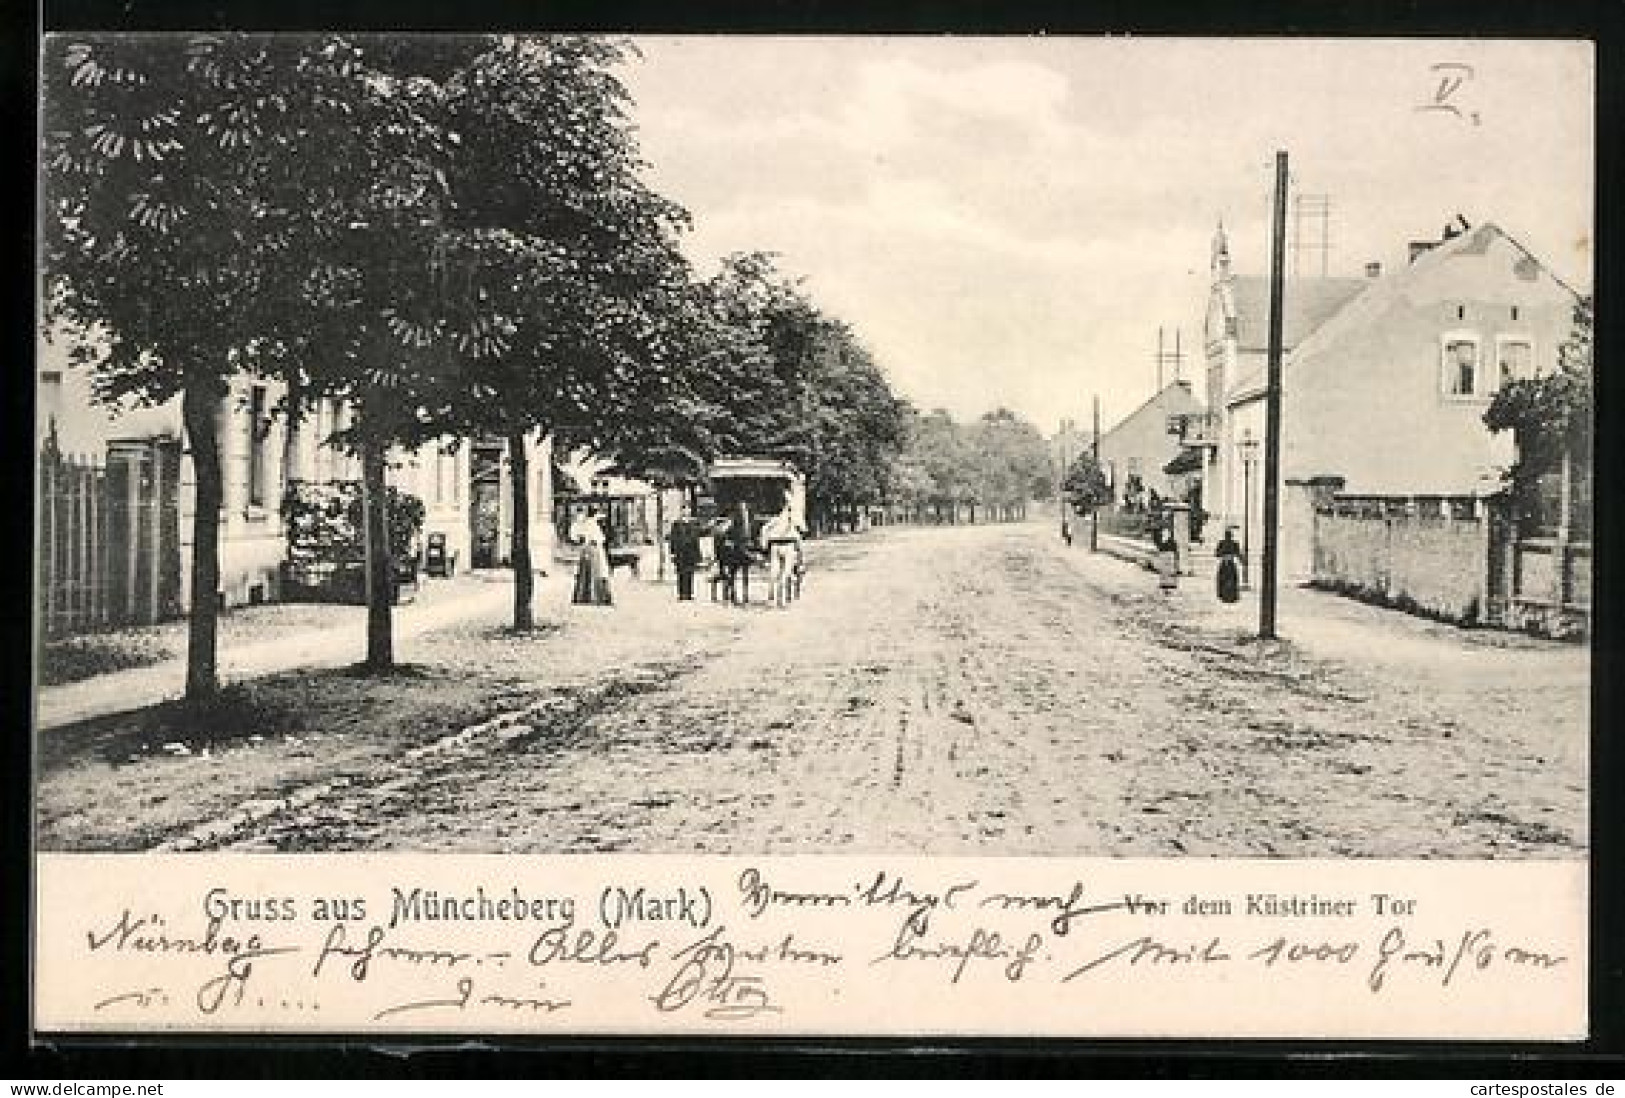 V.
Gruss aus Müncheberg (Mark) Vormittags nach Vor dem Küstriner Tor
Nürnberg fahren. – Alles Weitere brieflich. Mit 1000 Grüßen
u. K.... Dein Otto
delcampe.net
cartespostales de